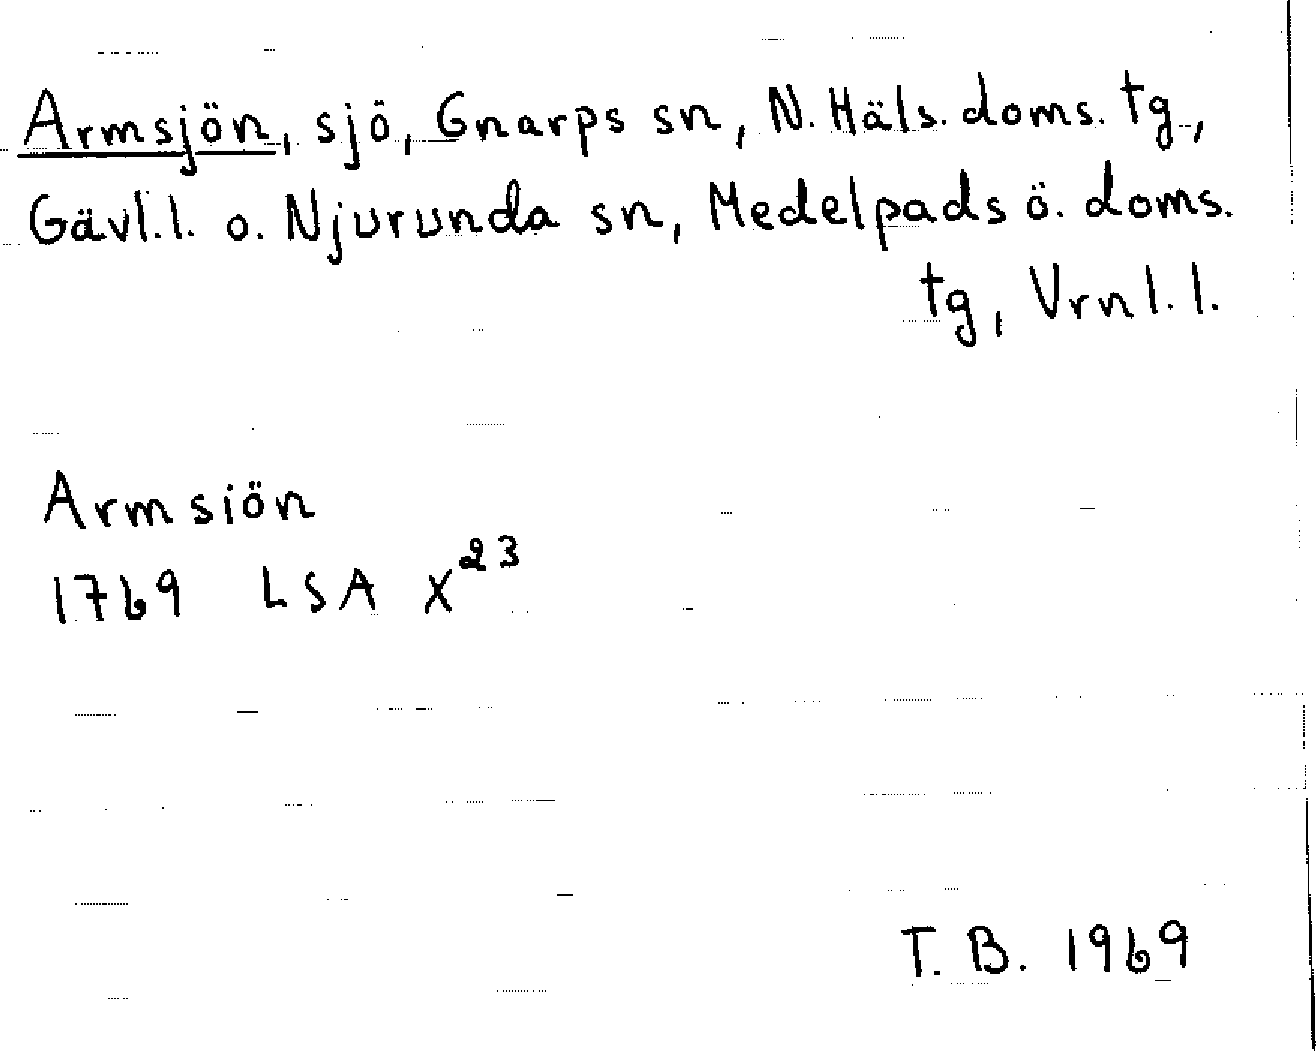 Armsjön, sjö, Gnarps sn, N. Häls. doms. tg,
Gävl.l. o. Njurunda sn, Medelpads ö. doms.
tg, Vrnl.l.
Armsiön
1769 LSA X²³
T. B. 1969